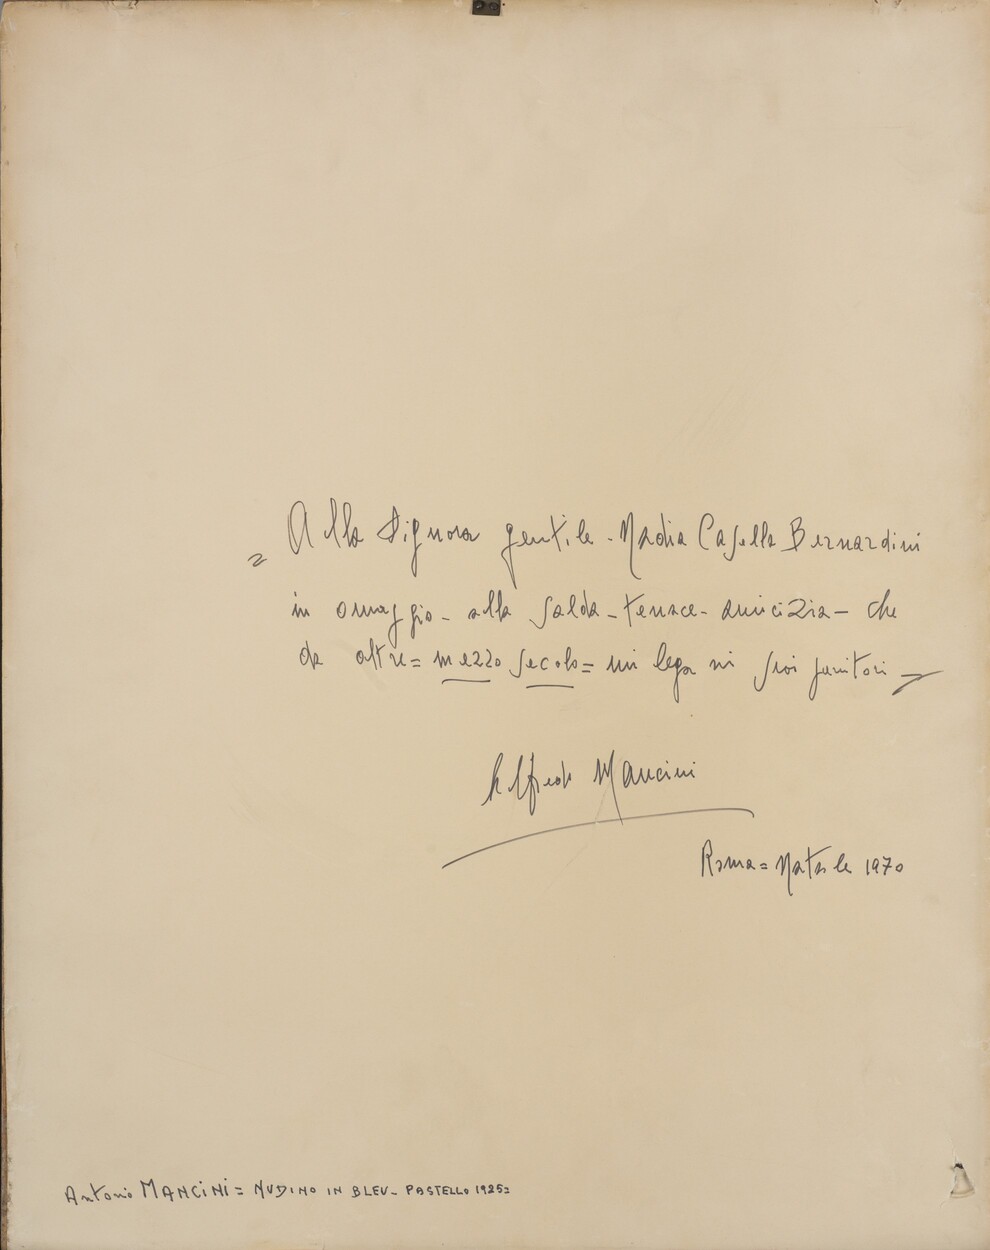 = Alla Signora gentile - Nadia Casella Bernardini
in omaggio - alla salda - tenace - amicizia - che
da oltre = mezzo secolo = mi lega ai suoi genitori -
Alfredo Mancini
Roma = Natale 1970
Antonio MANCINI = NUDINO IN BLEU - PASTELLO 1925 =